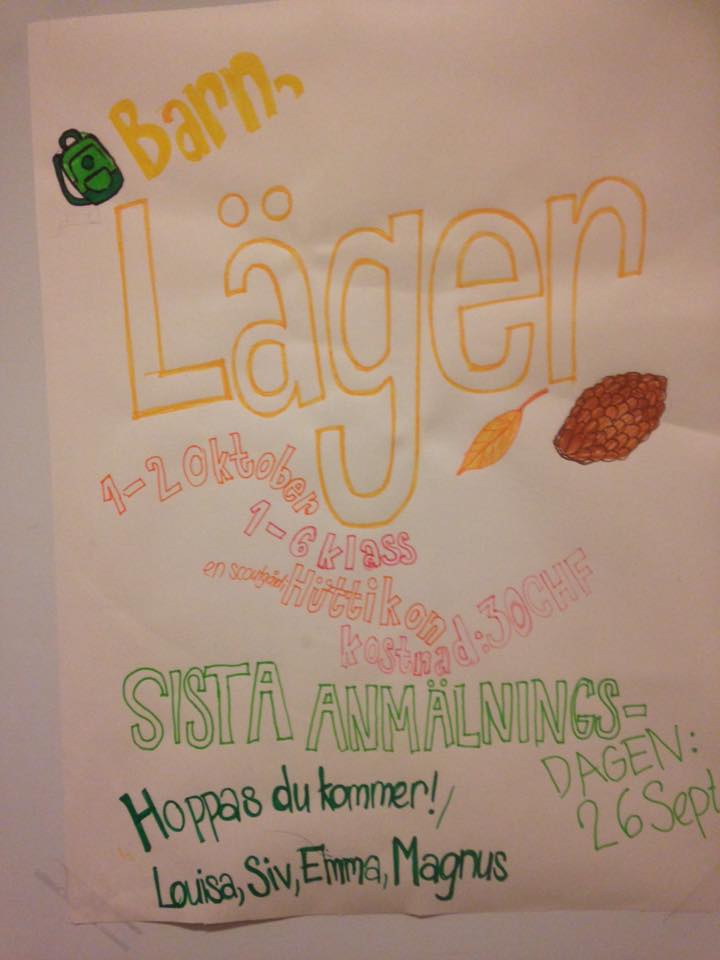 Barn
Läger
1-2 Oktober
1-6 klass
en scoutgård: Hüttikon
kostnad: 30CHF
SISTA ANMÄLNINGS-
DAGEN:
26 Sept
Hoppas du kommer!
Louisa, Siv, Emma, Magnus